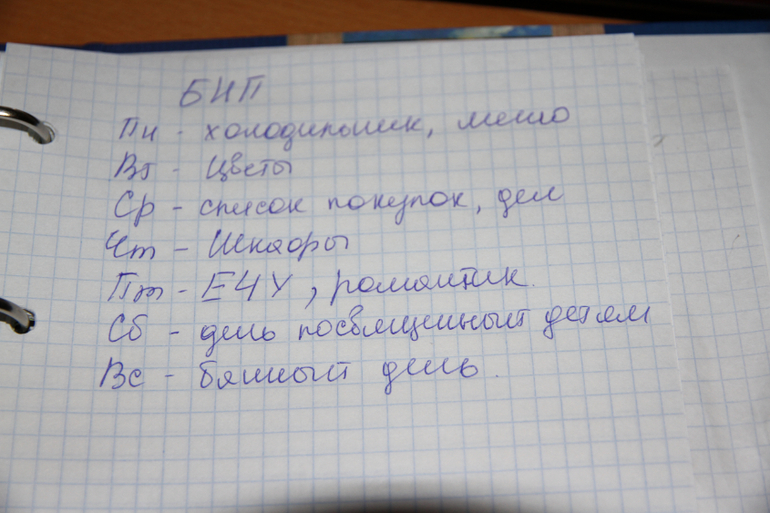 БНП
Пн - холодильник, меню
Вт - Цветы
Ср - список покупок, дел
Чт - Шкафы
Пт - ЕЧУ, романтик.
Сб - день посвященный детям
Вс - банный день.